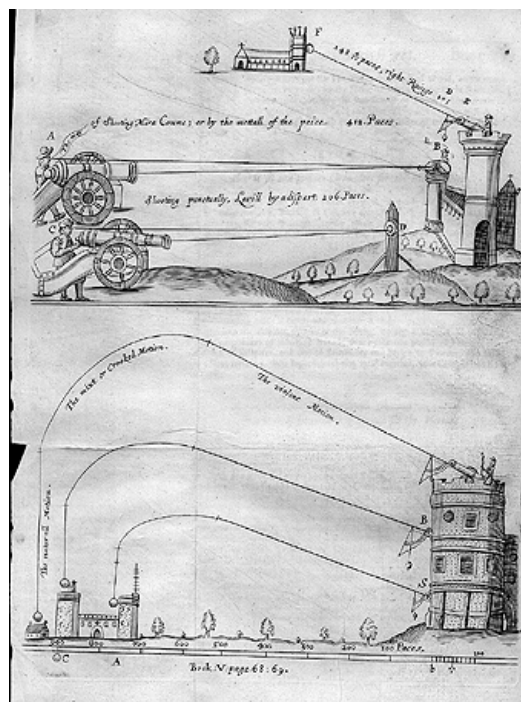 F
248 paces, right Rainge
D
E
A
of Shuting Mire Comme; or by the mettall of the peice. 412. Paces.
B
Shooting punctually, Levill by a dispert. 206. Paces.
C
D
The mixt or Crooked Motion.
The violent Motion.
The naturall Motion.
B
S
500 400 300 200 100 Paces.
C
A
Book. V. page 68: 69.